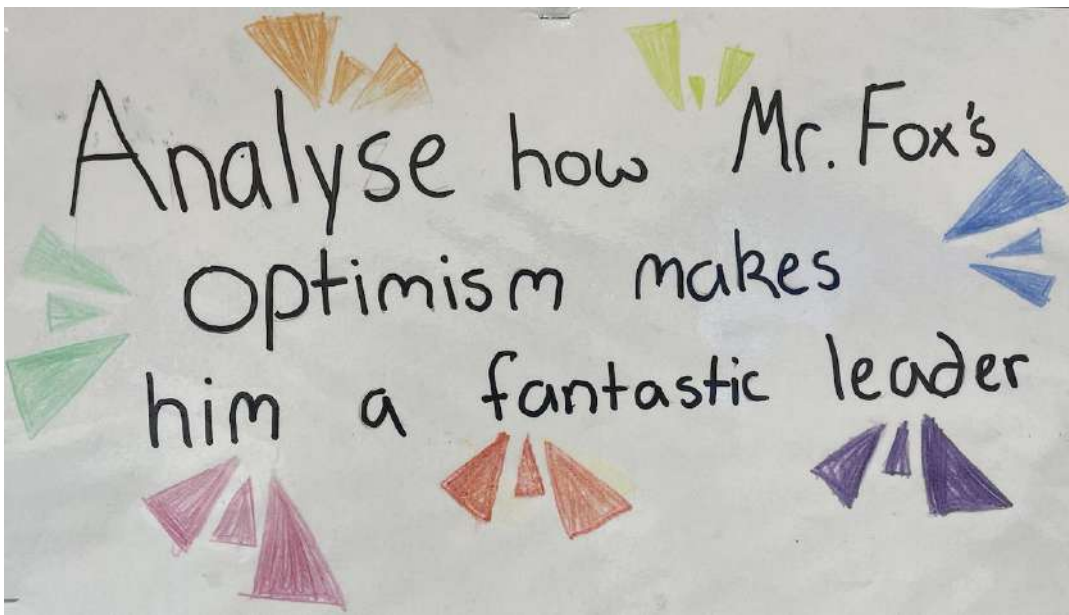 Analyse how Mr. Fox's
optimism makes
him a fantastic leader